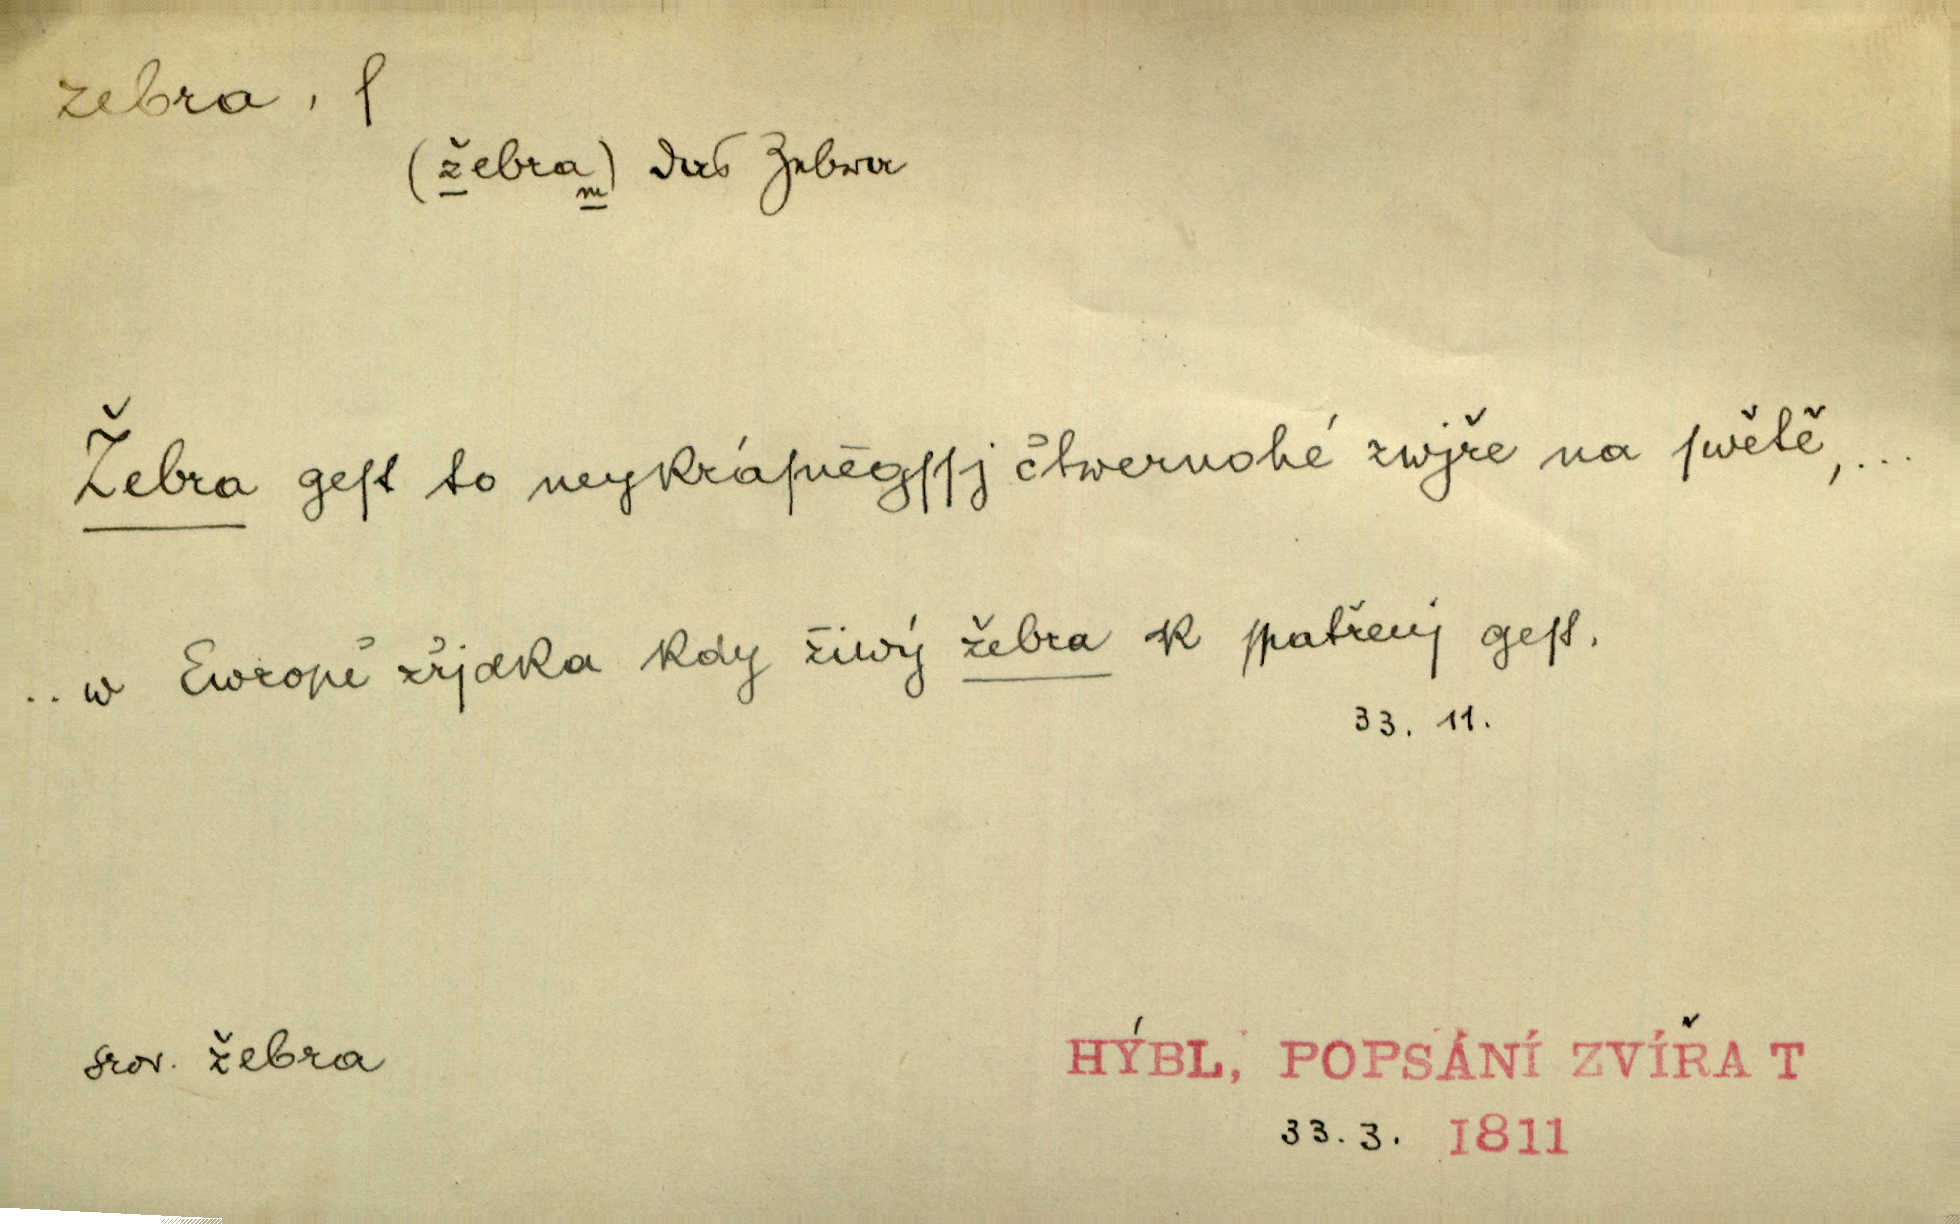 zebra, f
(žebra m) das Zebra
Žebra geſt to neykráſněgſſj čtwernohé zwjře na ſwětě,...
.. w Ewropě zřjdka kdy žiwý žebra k ſpatřenj geſt.
33. 11.
srov. žebra
HÝBL, POPSÁNÍ ZVÍŘAT
33. 3. 1811